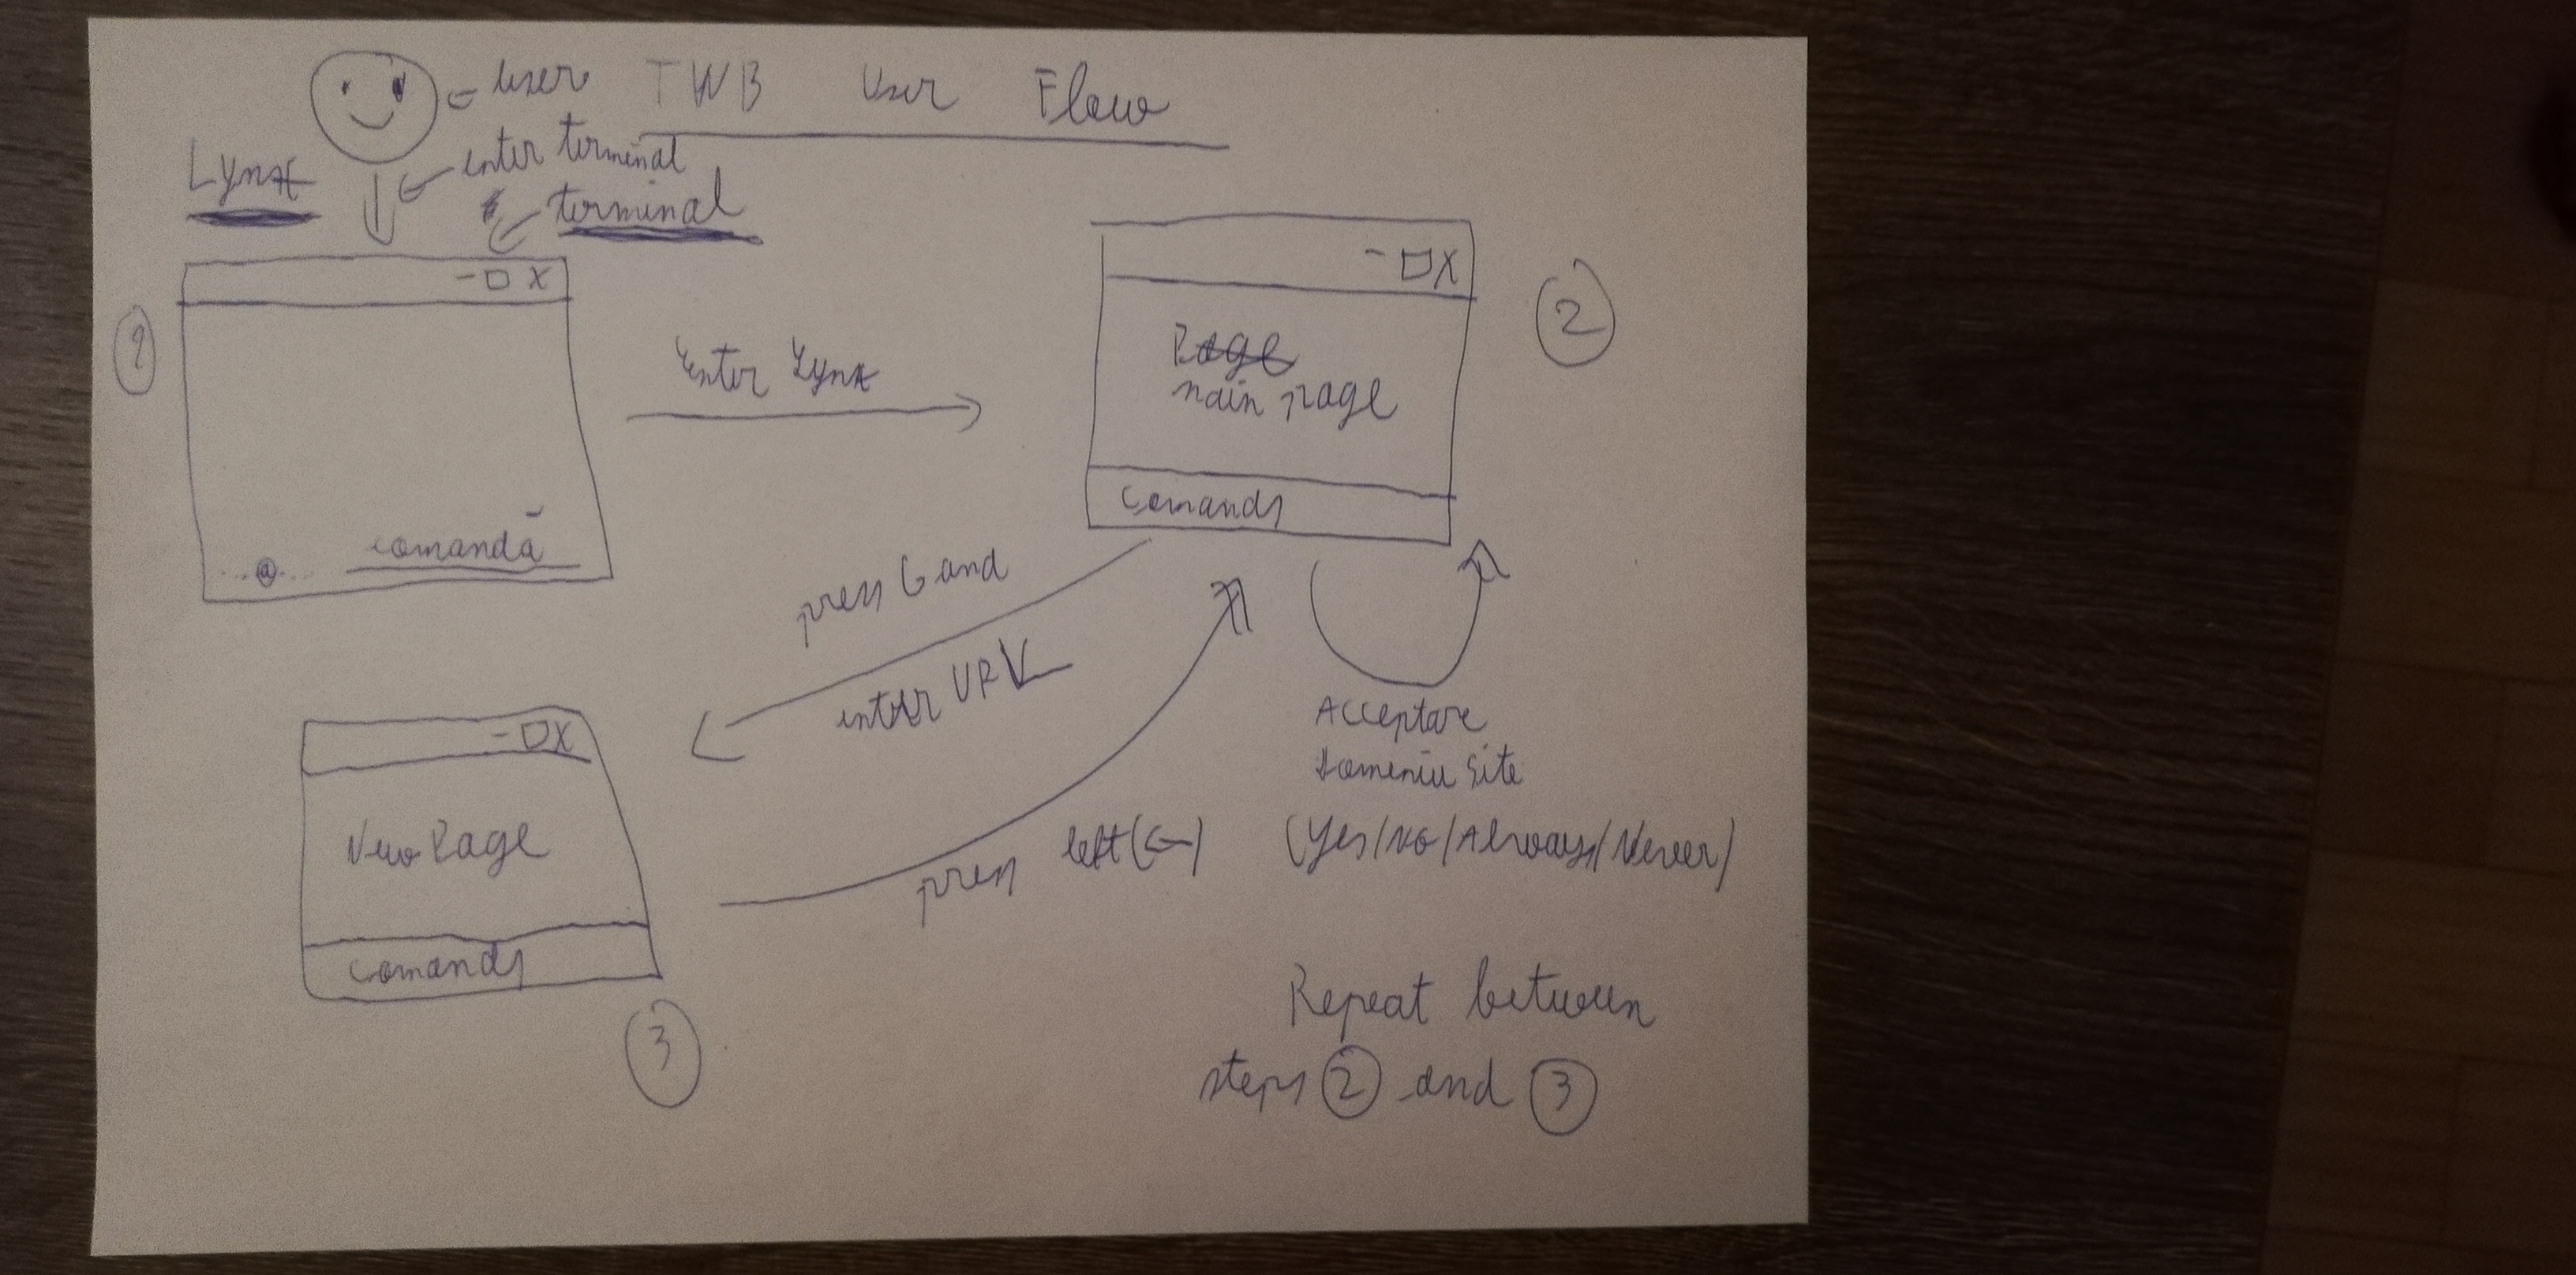 user
TWB User Flow
Lynx
enter terminal
terminal
- □ X
1
comandă
@
Enter Lynx
- □ X
2
main page
Comands
press G and
enter URL
Acceptare
Domeniu Site
(Yes/No/Always/Never)
press left (←)
- □ X
New Page
Comands
3
Repeat between
steps 2 and 3